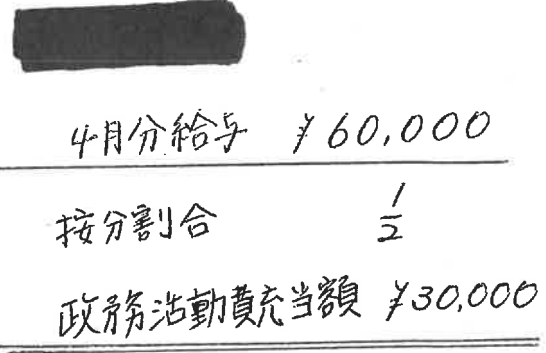 4月分給与 ¥60,000
按分割合 1/2
政務活動費充当額 ¥30,000